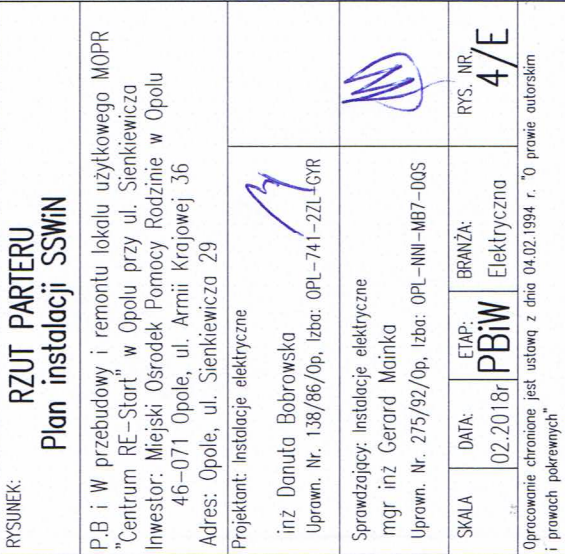 RYSUNEK:
RZUT PARTERU
Plan instalacji SSWiN
P.B i W przebudowy i remontu lokalu użytkowego MOPR
"Centrum RE-Start" w Opolu przy ul. Sienkiewicza
Inwestor: Miejski Ośrodek Pomocy Rodzinie w Opolu
46-071 Opole, ul. Armii Krajowej 36
Adres: Opole, ul. Sienkiewicza 29
Projektant: Instalacje elektryczne
inż Danuta Bobrowska
Uprawn. Nr. 138/86/Op, Izba: OPL-741-2ZL-GYR
Sprawdzający: Instalacje elektryczne
mgr inż Gerard Mainka
Uprawn. Nr. 275/92/Op, Izba: OPL-NNI-MB7-DQS
SKALA
DATA:
02.2018r
ETAP:
PBiW
BRANŻA:
Elektryczna
RYS. NR.
4/E
Opracowanie chronione jest ustawą z dnia 04.02.1994 r. "O prawie autorskim
i prawach pokrewnych"